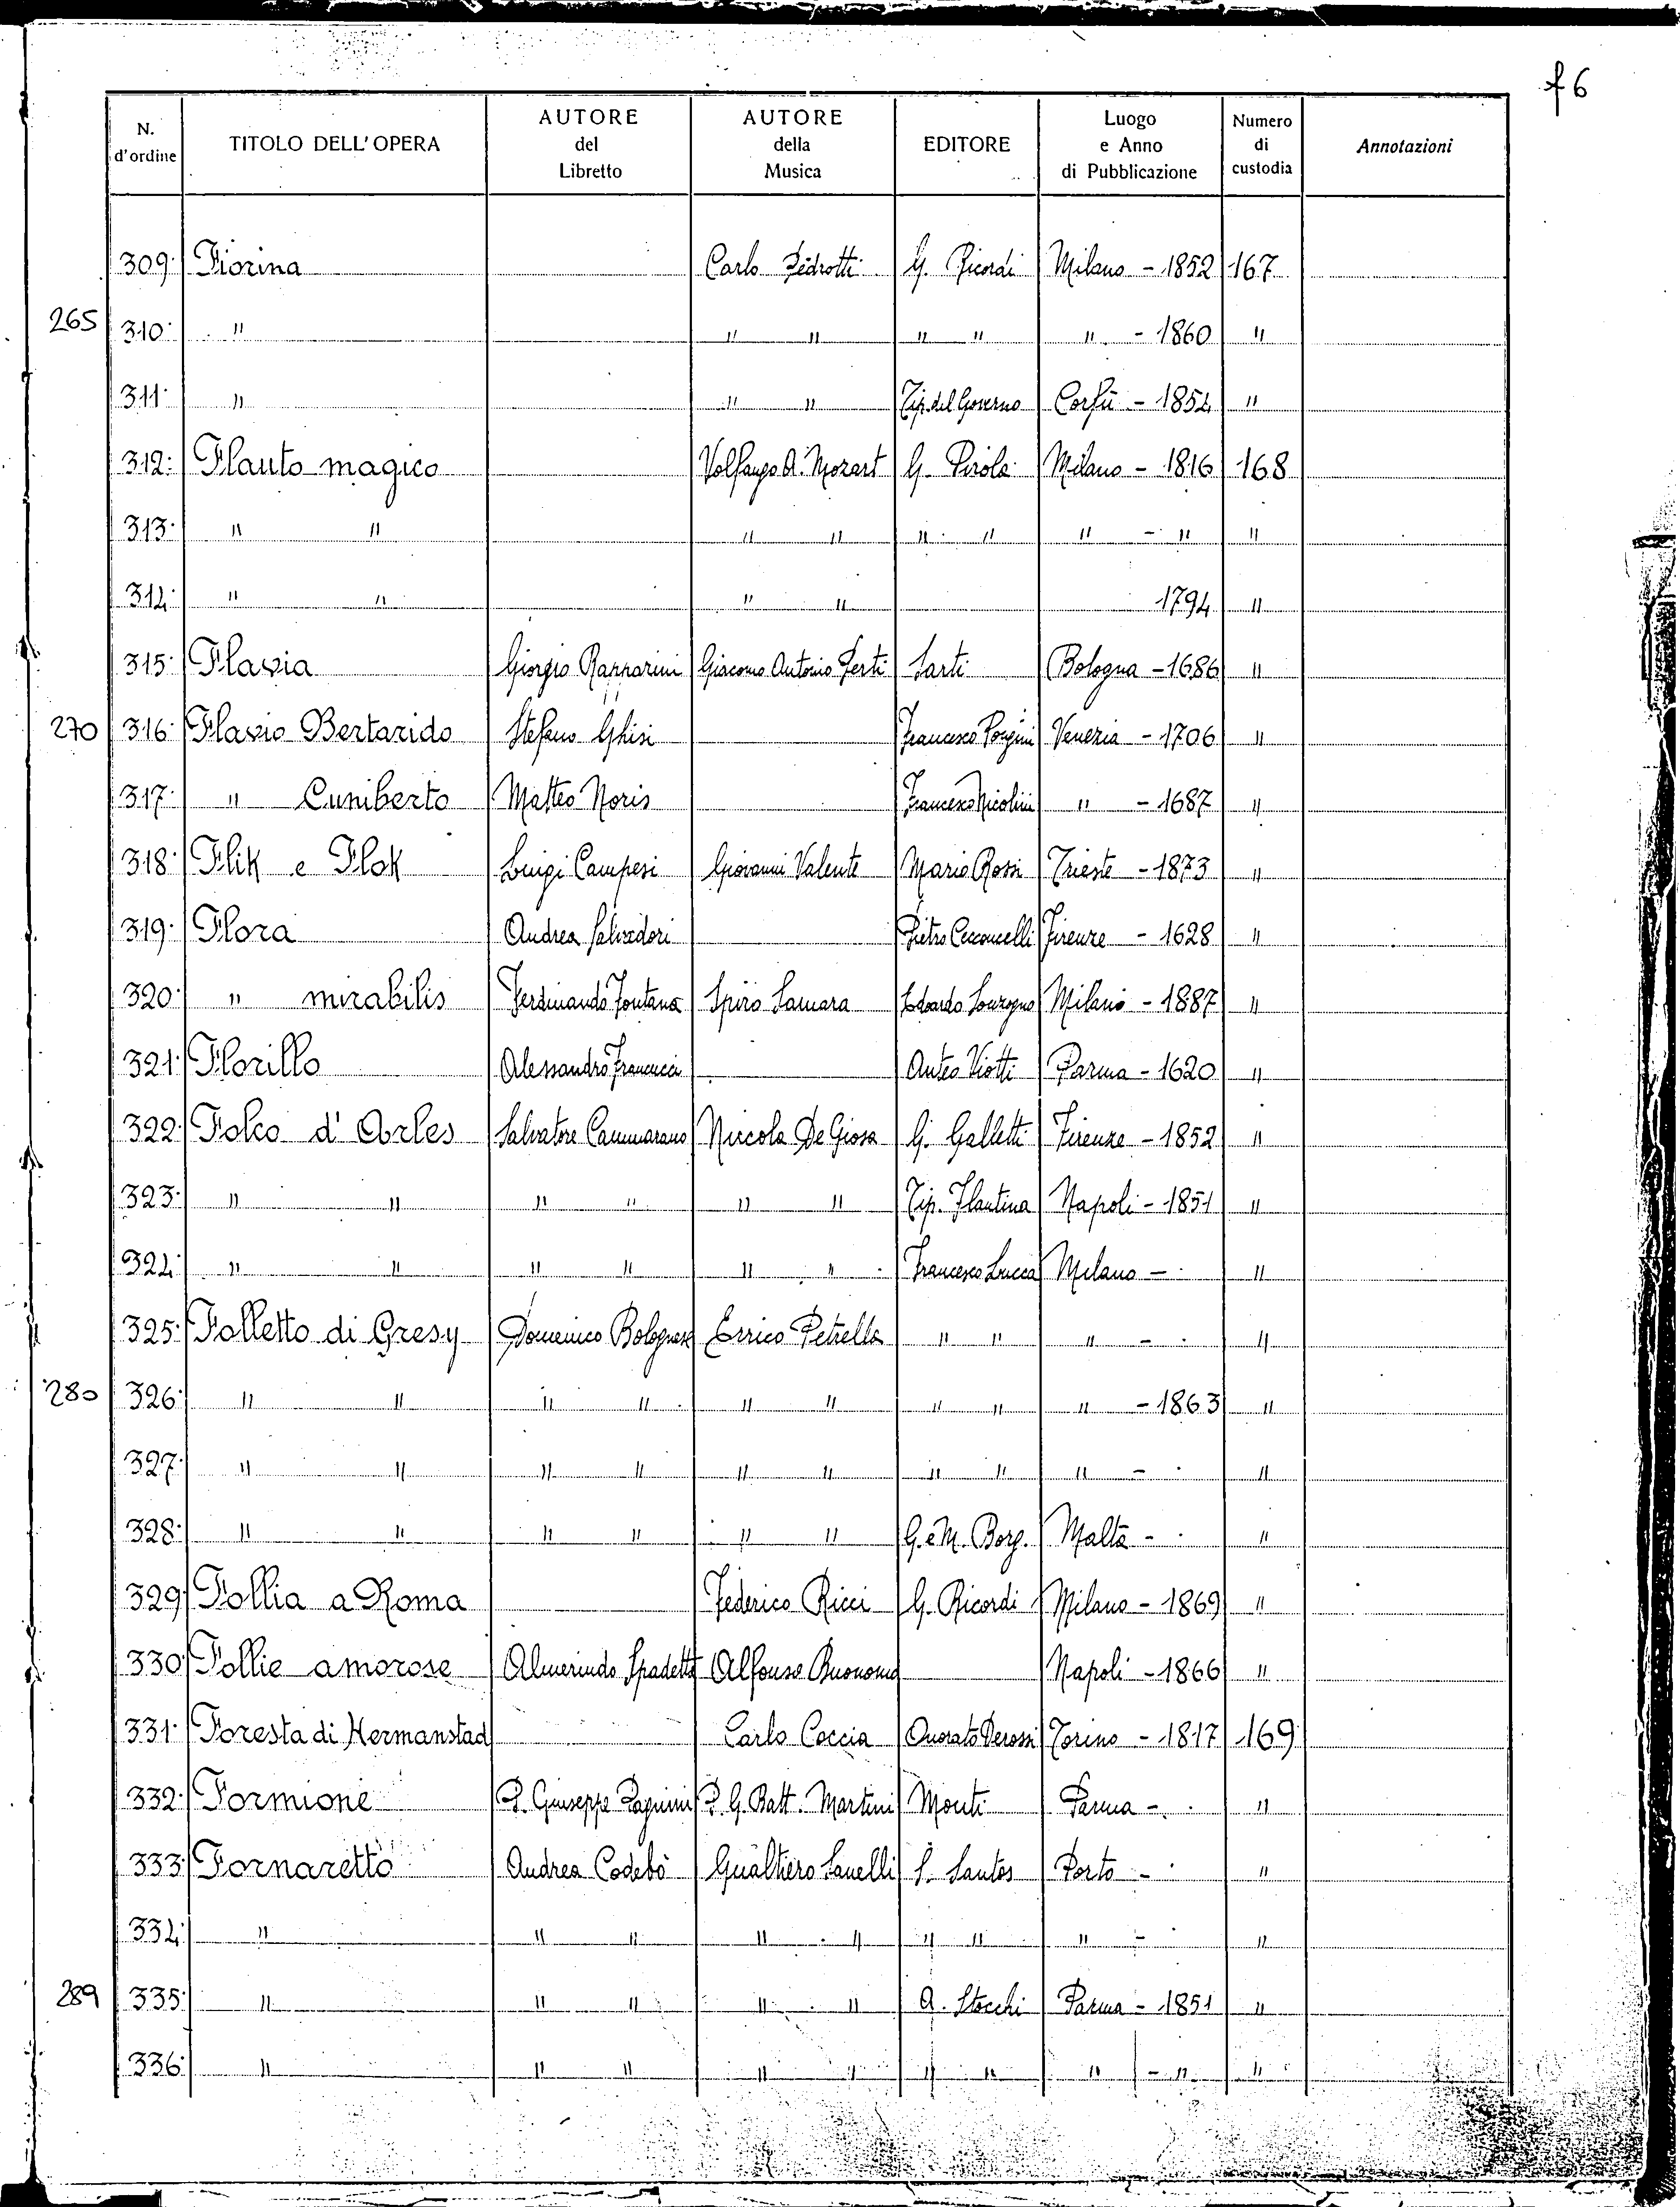 f 6
N. d'ordine | TITOLO DELL'OPERA | AUTORE del Libretto | AUTORE della Musica | EDITORE | Luogo e Anno di Pubblicazione | Numero di custodia | Annotazioni
309. Fiorina Carlo Pedrotti G. Ricordi Milano - 1852 167
265 310. " " " " " " - 1860 "
311. " " " Tip. del Governo Corfù - 1854 "
312. Flauto magico Volfango A. Mozart G. Pirola Milano - 1816 168
313. " " " " " " " - " "
314. " " " " 1794 "
315. Flavia Giorgio Rapparini Giacomo Antonio Perti Sarti Bologna - 1686 "
270 316. Flavio Bertarido Stefano Ghisi Francesco Venezia - 1706 "
317. " Cuniberto Matteo Noris Francesco Nicolini " - 1687 "
318. Flik e Flok Luigi Campesi Giovanni Valente Mario Rossi Trieste - 1873 "
319. Flora Andrea Salvadori Pietro Cecconcelli Firenze - 1628 "
320. " mirabilis Ferdinando Fontana Spiro Samara Edoardo Sonzogno Milano - 1887 "
321. Florillo Alessandro Francucci Anteo Viotti Parma - 1620 "
322. Folco d'Arles Salvatore Cammarano Niccola De Giosa G. Galletti Firenze - 1852 "
323. " " " " " " Tip. Plautina Napoli - 1851 "
324. " " " " " " Francesco Lucca Milano - "
325. Folletto di Gresy Domenico Bolognese Errico Petrella " " " - "
280 326. " " " " " " " " " - 1863 "
327. " " " " " " " " " - "
328. " " " " " " G. e M. Borg. Malta - "
329 Follia a Roma Federico Ricci G. Ricordi Milano - 1869 "
330 Follie amorose Almerindo Spadetta Alfonso Buonomo Napoli - 1866 "
331. Foresta di Hermanstad Carlo Coccia Onorato Derossi Torino - 1817 169
332. Formione P. Giuseppe Pagnini P. G. Batt. Martini Monti Parma - "
333 Fornaretto Andrea Codebò Gualtiero Sanelli S. Santos Porto - "
334. " " " " " " " " - "
289 335. " " " " " A. Stocchi Parma - 1851 "
336. " " " " " " " " - " "